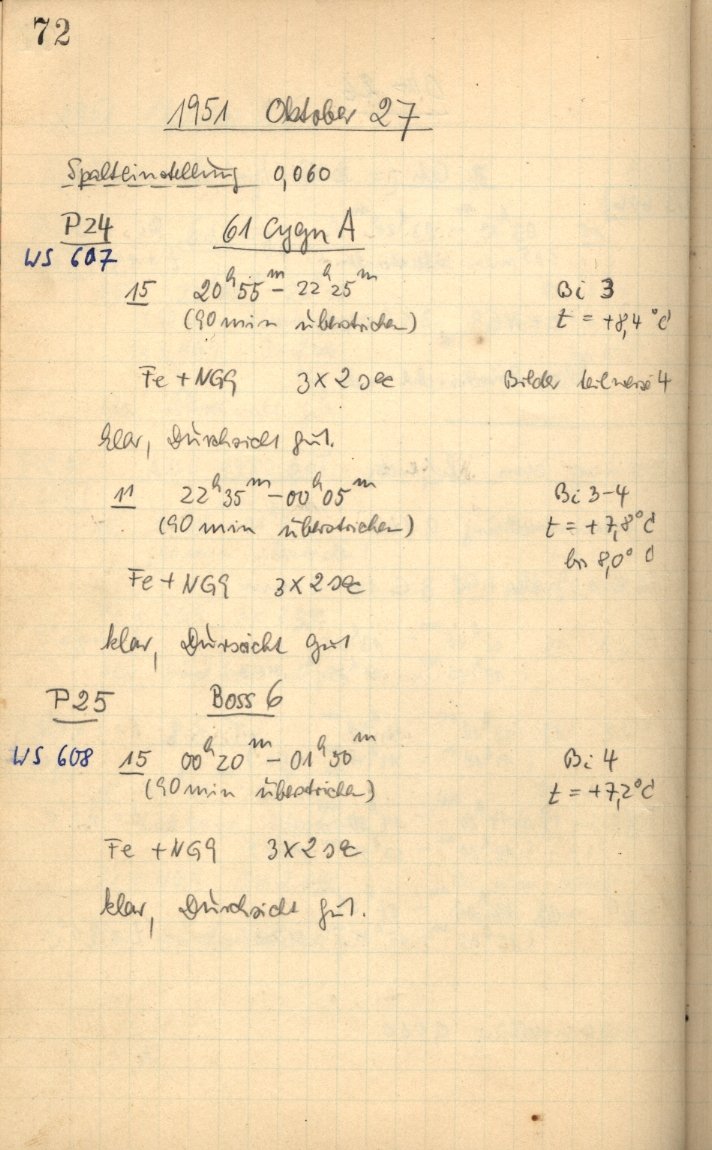 72
1951 Oktober 27
Spalteinstellung 0,060
P24 61 Cygn A
WS 607
15 20h55m – 22h25m Bi 3
(90 min überstrichen) t = +8,4°C
Fe + NG9 3 x 2 sec Bilder teilweise 4
klar, Durchsicht gut.
11 22h35m – 00h05m Bi 3-4
(90 min überstrichen) t = +7,8°C
bis 8,0°C
Fe + NG9 3 x 2 sec
klar, Dursicht gut
P25 Boss 6
WS 608 15 00h20m – 01h50m Bi 4
(90 min überstrichen) t = +7,2°C
Fe + NG9 3 x 2 sec
klar, Durchsicht gut.